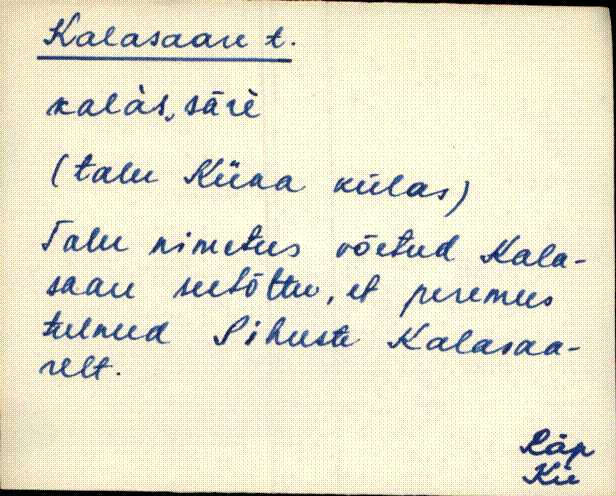 Kalasaare t.
kalàs, sārè
(talu Küka külas)
Talu nimetus võetud Kala-
saare seetõttu, et peremees
tulnud Sihuste Kalasaa-
relt.
Räp
Kü